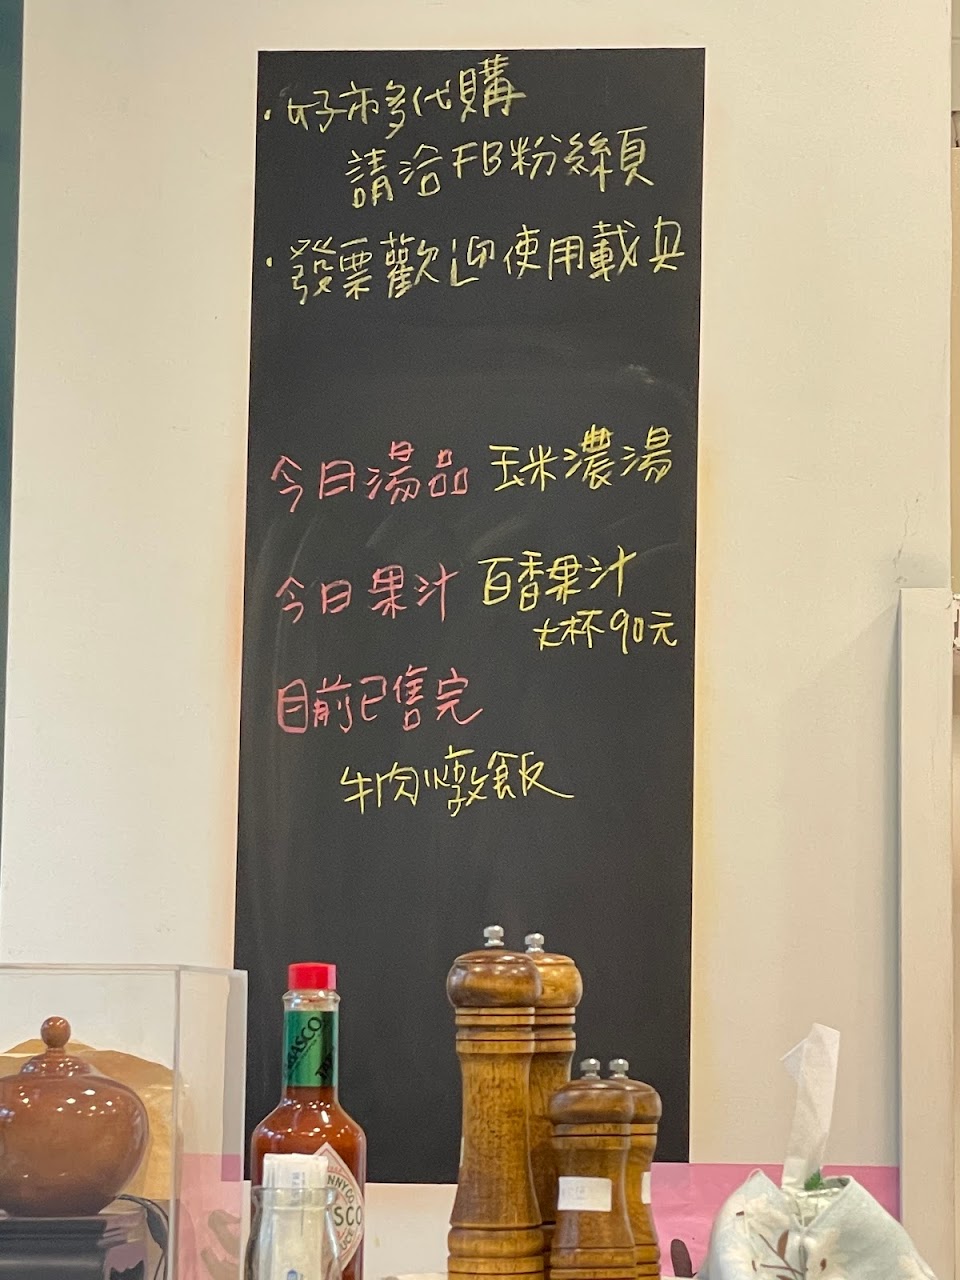 ·好市多代購
請洽FB粉絲頁
·發票歡迎使用載具
今日湯品 玉米濃湯
今日果汁 百香果汁
大杯90元
目前已售完
牛肉燉飯
TABASCO
SCO